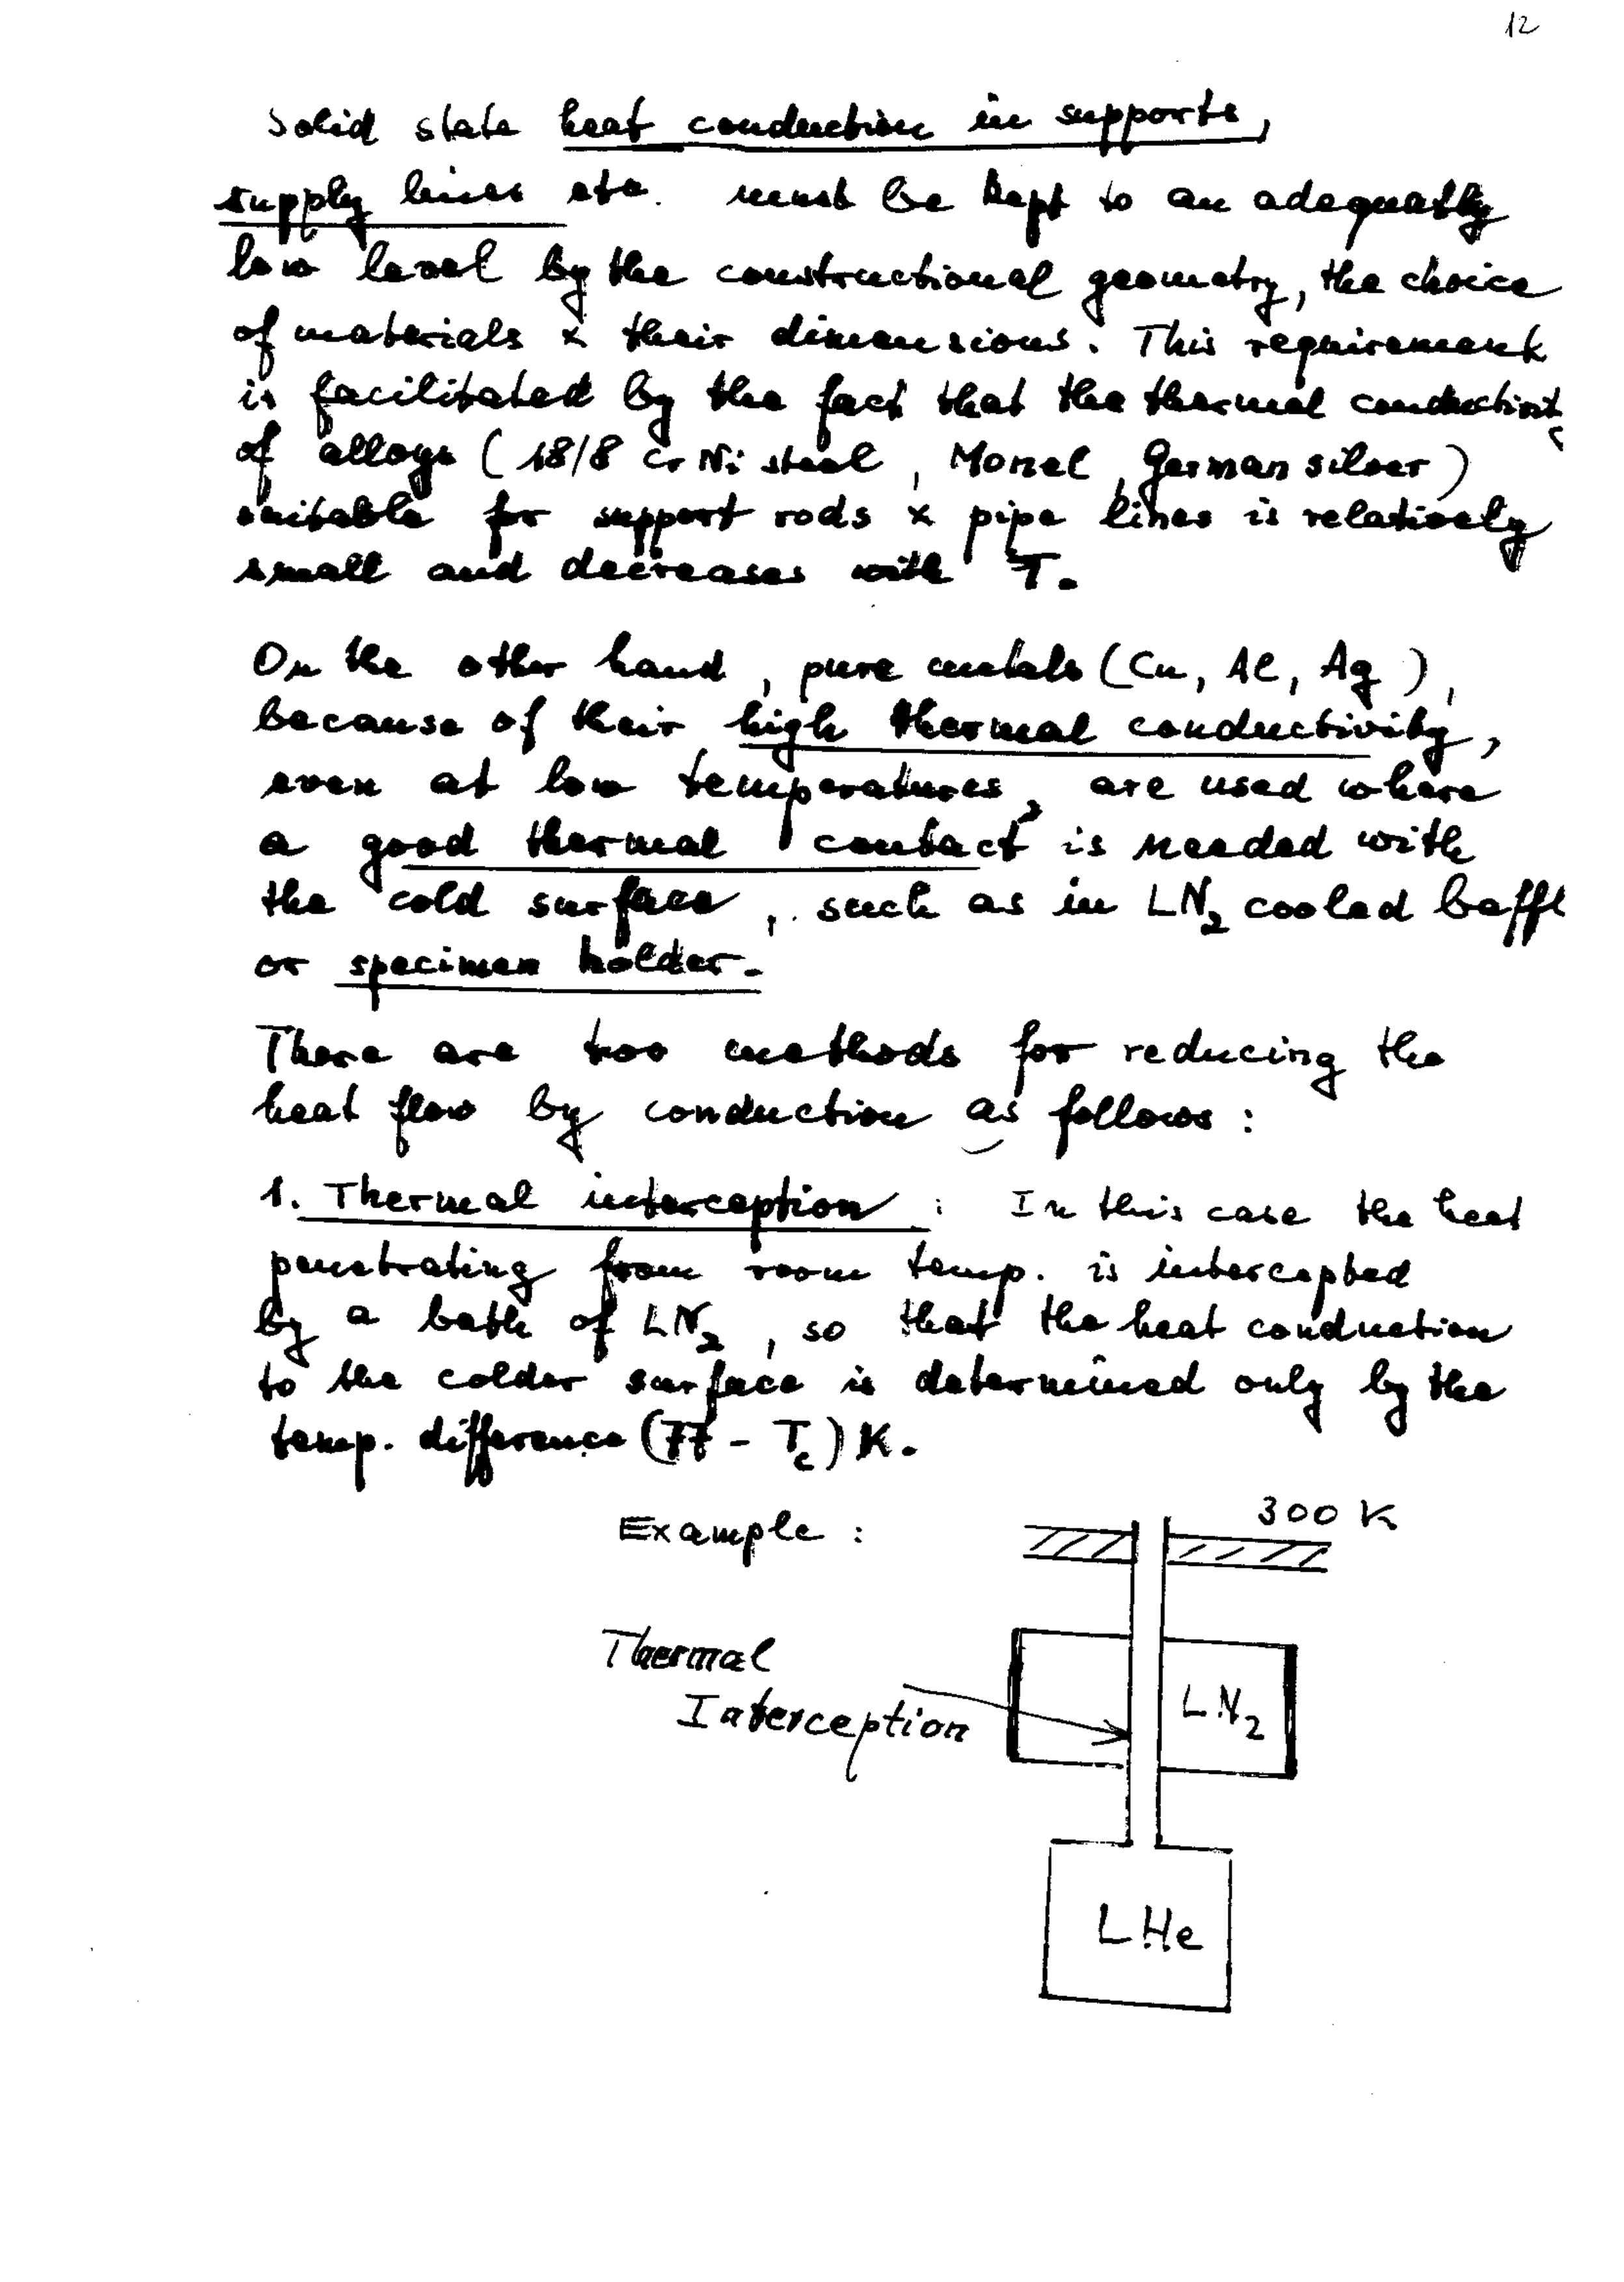 12
Solid state heat conduction in supports,
supply lines etc. must be kept to an adequatly
low level by the constructional geometry, the choice
of materials & their dimensions. This requirement
is facilitated by the fact that the thermal conductivit
of alloys (18/8 Cr Ni steel, Monel, German silver)
suitable for support rods & pipe lines is relatively
small and decreases with T.
On the other hand, pure metals (Cu, Al, Ag),
because of their high thermal conductivity,
even at low temperatures, are used where
a good thermal contact is needed with
the cold surface, such as in LN₂ cooled baffl
or specimen holder.
There are two methods for reducing the
heat flow by conduction as follows:
1. Thermal interception: In this case the heat
penetrating from room temp. is intercepted
by a bath of LN₂, so that the heat conduction
to the colder surface is determined only by the
temp. difference (77 - T_c) K.
Example:
300 K
Thermal
Interception
LN₂
LHe